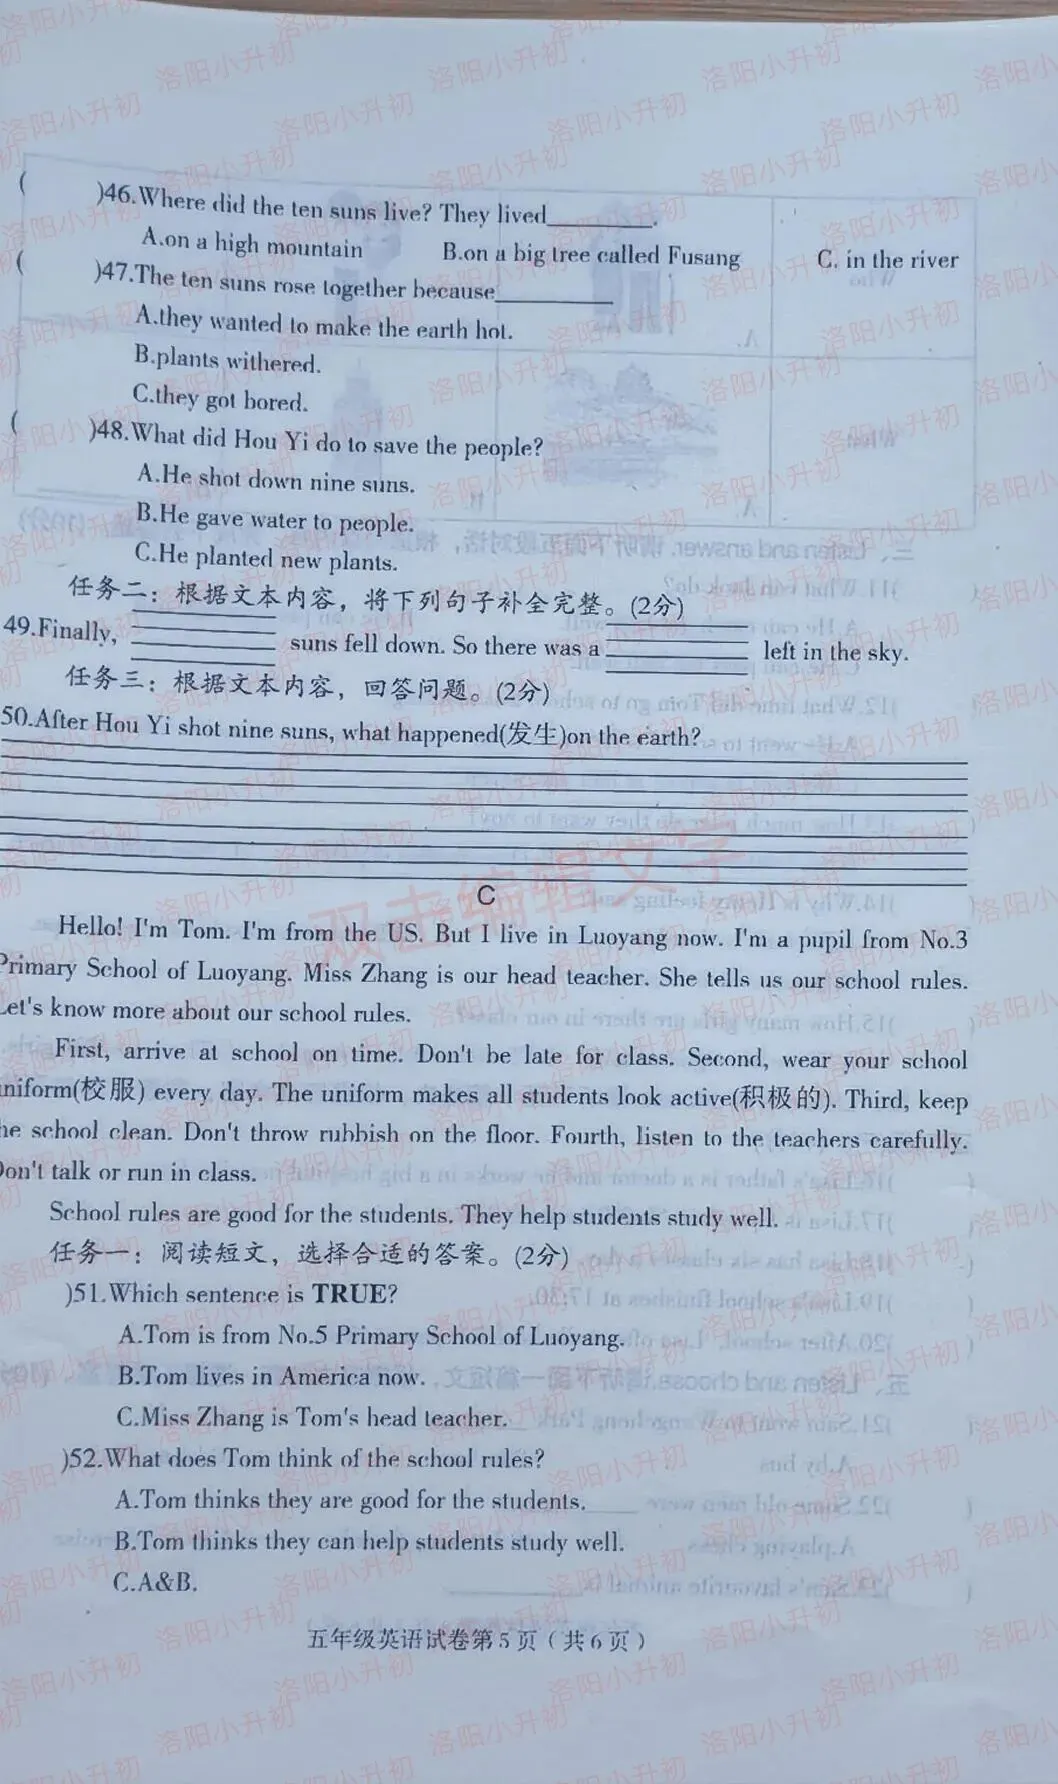 ( )46.Where did the ten suns live? They lived________.
A.on a high mountain B.on a big tree called Fusang C. in the river
( )47.The ten suns rose together because________
A.they wanted to make the earth hot.
B.plants withered.
C.they got bored.
( )48.What did Hou Yi do to save the people?
A.He shot down nine suns.
B.He gave water to people.
C.He planted new plants.
任务二：根据文本内容，将下列句子补全完整。(2分)
49.Finally, ________ suns fell down. So there was a ________ left in the sky.
任务三：根据文本内容，回答问题。(2分)
50.After Hou Yi shot nine suns, what happened(发生)on the earth?
双击编辑文字
C
Hello! I'm Tom. I'm from the US. But I live in Luoyang now. I'm a pupil from No.3
Primary School of Luoyang. Miss Zhang is our head teacher. She tells us our school rules.
Let's know more about our school rules.
First, arrive at school on time. Don't be late for class. Second, wear your school
uniform(校服) every day. The uniform makes all students look active(积极的). Third, keep
he school clean. Don't throw rubbish on the floor. Fourth, listen to the teachers carefully.
Don't talk or run in class.
School rules are good for the students. They help students study well.
任务一：阅读短文，选择合适的答案。(2分)
)51.Which sentence is TRUE?
A.Tom is from No.5 Primary School of Luoyang.
B.Tom lives in America now.
C.Miss Zhang is Tom's head teacher.
)52.What does Tom think of the school rules?
A.Tom thinks they are good for the students.
B.Tom thinks they can help students study well.
C.A&B.
五年级英语试卷第5页（共6页）
洛阳小升初